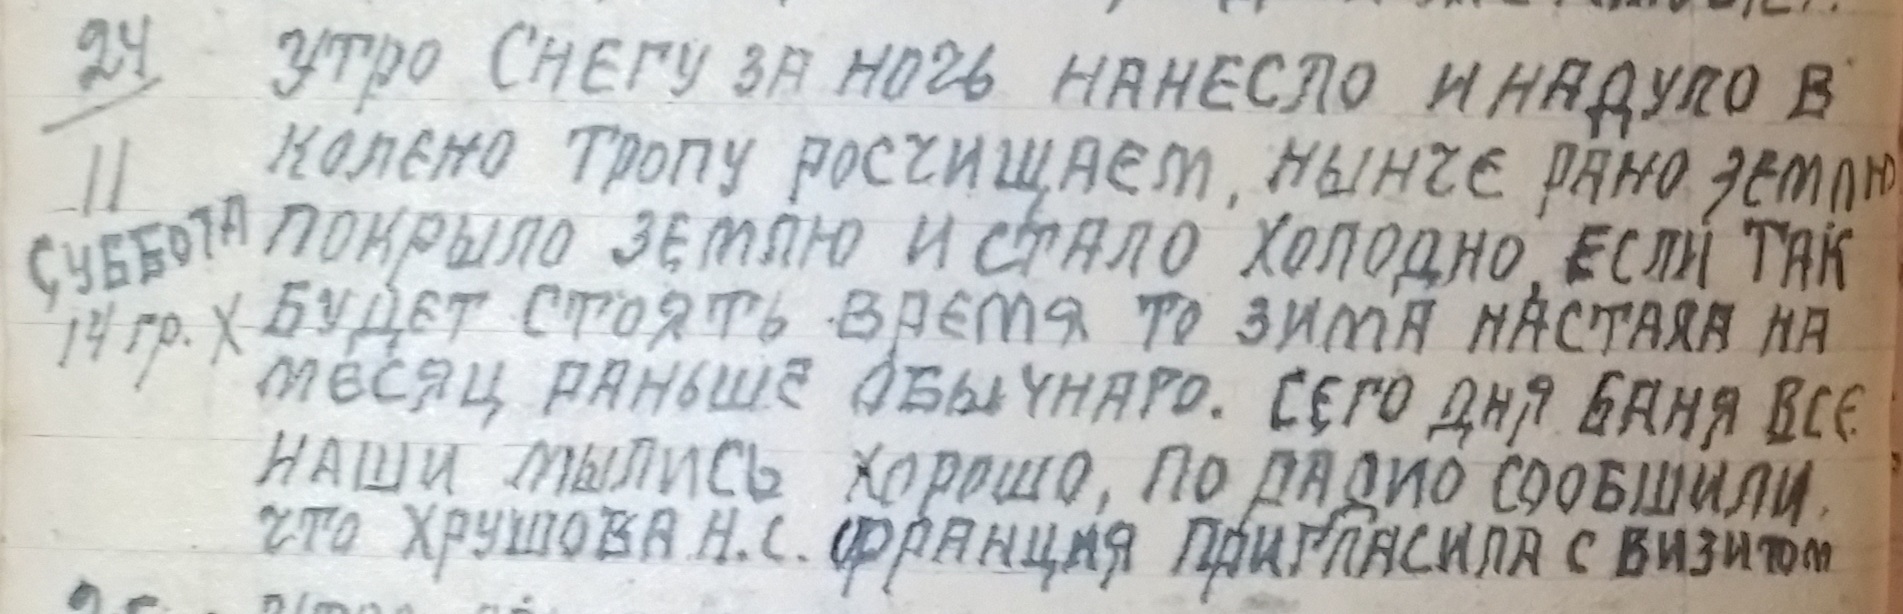 24
11
СУББОТА
14 гр. Х
УТРО СНЕГУ ЗА НОЧЬ НАНЕСЛО И НАДУЛО В
КОЛЕНО ТРОПУ РОСЧИЩАЕМ, НЫНЧЕ РАНО ЗЕМЛЮ
ПОКРЫЛО ЗЕМЛЮ И СТАЛО ХОЛОДНО, ЕСЛИ ТАК
БУДЕТ СТОЯТЬ ВРЕМЯ ТО ЗИМА НАСТАЛА НА
МЕСЯЦ РАНЬШЕ ОБЫЧНАГО. СЕГО ДНЯ БАНЯ ВСЕ
НАШИ МЫЛИСЬ ХОРОШО, ПО РАДИО СООБШИЛИ,
ЧТО ХРУШОВА Н.С. ФРАНЦИЯ ПРИГЛАСИЛА С ВИЗИТОМ